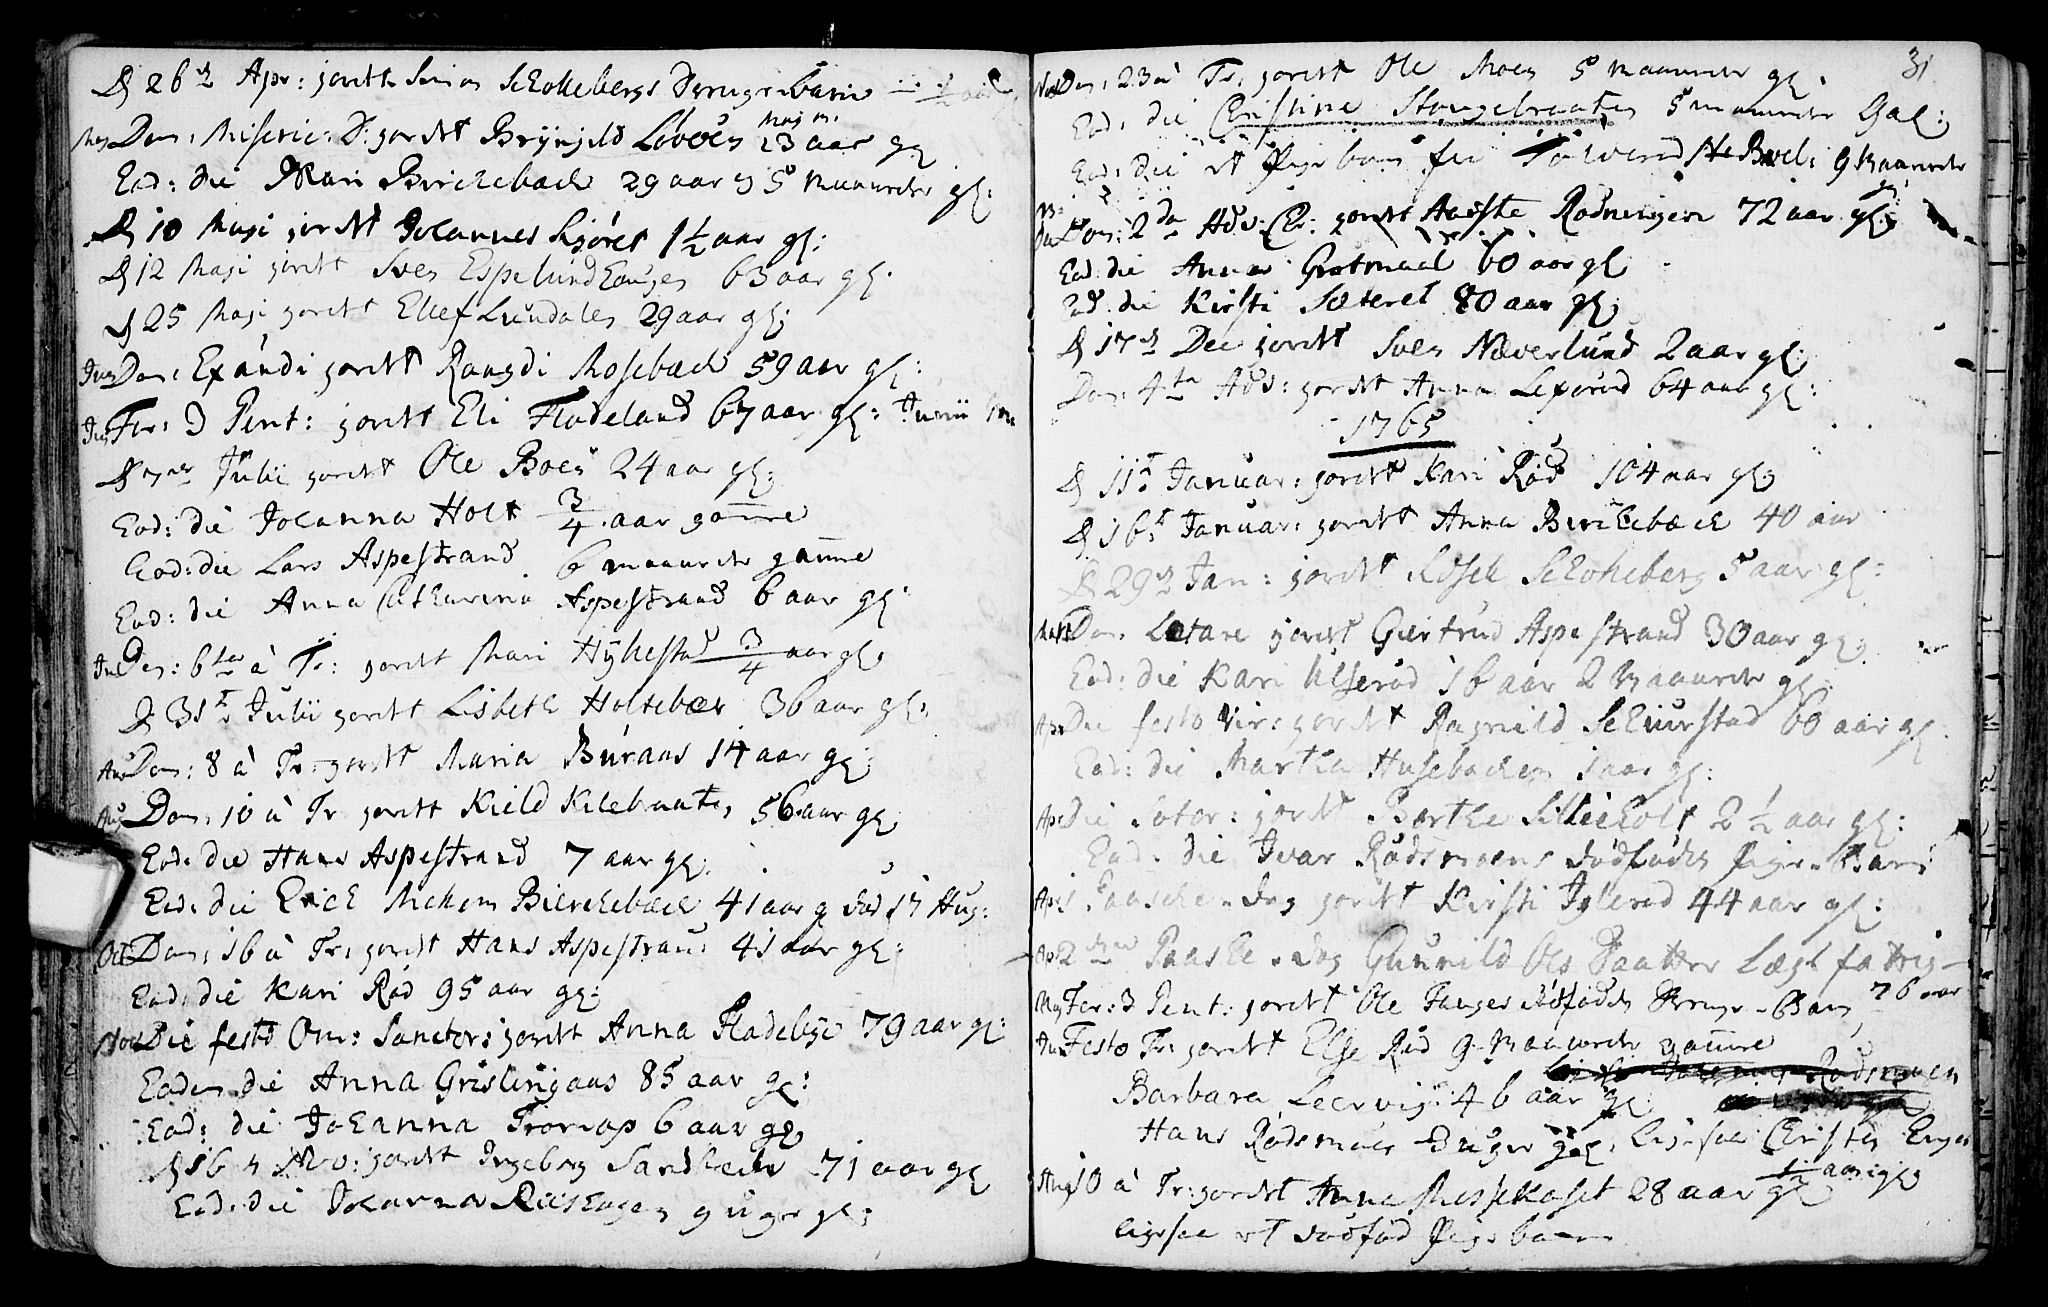 D 26de Apr: jordt Simen Skollebergs Drenge-barn
Maj Dom: Miseric: D: jordt Brÿnjild Loboen 23 aar gl
Maj m.
Eod: die Mari Birchebæch 29 aar og 5 Maaneder gl:
D 10 Maji jordt Johannes Skjöret 1½ aar gl:
D 12 Maji jordt Sven Espelundhaugen 63 aar gl.
D 25 Maji jordt Ellef Lundalen 29 aar gl:
Jun Dom: Exaudi jordt Rangdi Mosebæch 59 aar gl:
Jun Fer: 3 Pent: jordt Eli Fladeland 67 aar gl: Junii
D 7de Julii jordt Ole Boen 24 aar gl:
Eod: die Johanna Holt 3/4 aar gamle
Eod: die Lars Aspestrand 6 maaneder gamle
Eod: die Anna Catharina Aspestrand 6 aar gl:
Jul Dom: 6ta à Tr: jordt Mari Hÿkestad 3/4 aar gl:
D. 31t Julii jordt Lisbeth Holtebæk 36 aar gl:
Aug Dom: 8 à Tr: jordt Maria Buraas 14 aar gl:
Aug Dom: 10 à Tr jordt Kield Kilebraaten 56 aar gl:
Eod: die Hans Aspestrand 7 aar gl:
Eod: die Erich Birchebæch 41 aar g död 17 Aug:
Oct Dom: 16 à Tr: jordt Hans Aspestrand 41 aar gl:
Eod: die Kari Röd 95 aar gl:
Nov Die festo Om: Sanctor: jordt Anna Fladebÿe 79 aar gl:
Eodem die Anna Grislingaas 85 aar gl:
Eod: die Johanna Trorrap 6 aar gl:
D 16 Nov: jordt Ingeborg Sandbech 71 aar gl
Eod: die Johanna Riishagen 9 uger gl:
31
Nov Dom: 23 à Tr: jordt Ole Moen 5 maaneder gl:
Eod: die Christine Haugebraaten 5 maaneder Gal:
Eod: die et Pige barn fra Tolverød 9 Maaneder
gl:
Dom: 2da Adv: Chr: jordt Aaste Rödningen 72 aar gl:
Eod: die Anna Grotmaal 60 aar gl:
Eod: die Kirsti Sæteret 80 aar gl:
D 17de Dec jordt Sven Næverlund 2 aar gl:
Dom: 4ta Adv: jordt Anna Lexeröd 64 aar gl:
1765
D 11t Januar: jordt Kari Röd 104 aar gl:
D 16t Januar: jordt Anna Birchebæch 40 aar
D 29de Jan: jordt Scholleberg 5 aar gl:
Mart Dom. Lætare jordt Giertrud Aspestrand 30 aar gl:
Eod: die Kari Ulseröd 16 aar 2 Maaneder gl:
Apr Die festo Vir: jordt Ragnild Schiurstad 60 aar gl:
Eod: die Martha Husebachen 1 aar gl:
Apr Die Soter: jordt Berthe Lillieholt 2½ aar gl:
Eod: die Ivar Rödsmoens Dödföden Pige-Barn
Apr 1 Paasche-dag jordt Kirsti Igleröd 44 aar gl:
Apr 2den Paaske-dag Gunnild Ols Daatter Lægs fattig
76 aar
Maj Fer: 3 Pent: jordt Ole Hauges dödfödde Drenge-Barn
Jun Festo Tr: jordt Else Röd 9 Maaneder gamle
Barbara Leervig 46 aar gl:
Hans Rödsmoen Uger gl: ligesaa Christen Engen
1½ aar gl
Aug 10 à Tr: jordt Anne Messekaset 28 aar gl
ligesaa et dödföd Pige barn